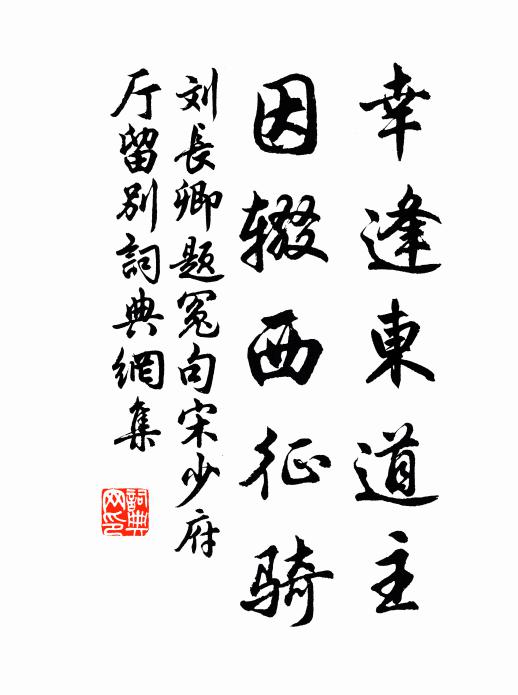 幸逢東道主
因辍西征骑
刘長卿題冤句宋少府
厅留别詞典網集
詞典网印